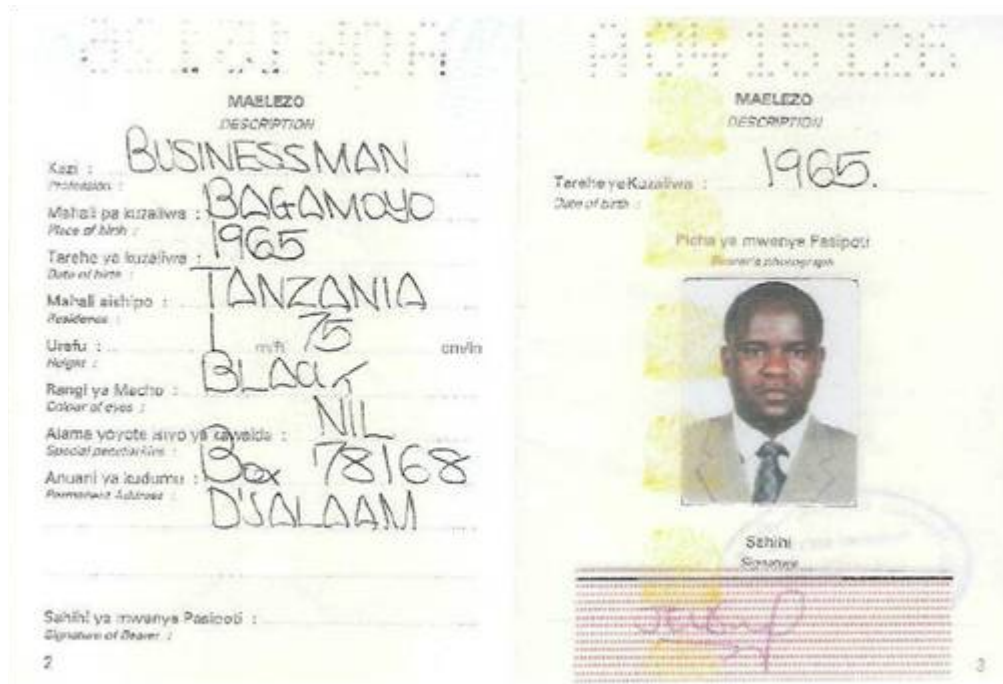 MAELEZO
DESCRIPTION
Kazi : BUSINESSMAN
Profession :
Mahali pa kuzaliwa : BAGAMOYO
Place of birth :
Tarehe ya kuzaliwa : 1965
Date of birth :
Mahali aishipo : TANZANIA
Residence :
Urefu : 1 m/ft 75 cm/in
Height :
Rangi ya Macho : BLACK
Colour of eyes :
Alama yoyote isiyo ya kawaida : NIL
Special peculiarities :
Anuani ya kudumu : Box 78168
Permanent Address : D'SALAAM
Sahihi ya mwenye Pasipoti :
Signature of Bearer :
2
MAELEZO
DESCRIPTION
Tarehe ya Kuzaliwa : 1965.
Date of birth :
Picha ya mwenye Pasipoti
Bearer's photograph
Sahihi
Signature
3